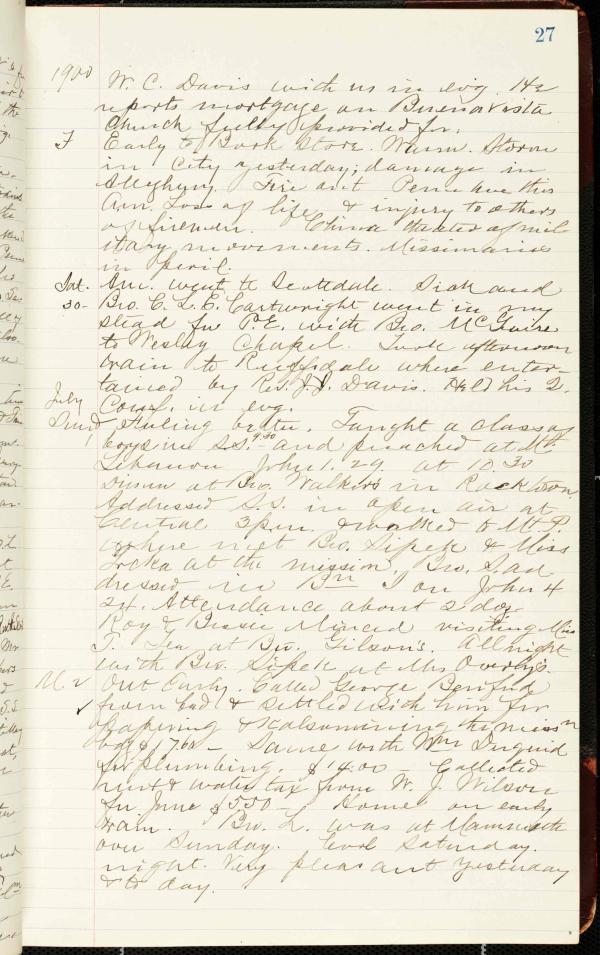 27
1900
W. C. Davis with us in evg. He
reports mortgage on Buena Vista
Church fully provided for.
F Early to Book Store. Warm. Storm
in City yesterday; damage in
Allegheny. Fire at Penn Ave this
Am. Loss of life & injury to others
of firemen. China theater of mil
itary movements. Missionaries
in peril.
Sat. Am. went to Scottdale. Sick and
30- Bro. C. L. E. Cartwright went in my
stead for P.E. with Bro. McGuire
to Wesley Chapel. Took afternoon
train to where enter-
tained by Rev. J. J. Davis. Held his 2.
July Conf. in evg.
Sund Feeling better. Taught a class of
1 boys in S.S. 9:30 and preached at Mt.
Lebanon John 1.29. at 10.30
Dinner at Bro. Walker's in
Addressed S.S. in open air at
Central 3 p.m. & walked to Mt. P.
where met Bro. Sipek & Miss
at the mission. Bro. S ad
dressed in I on John 4
24. Attendance about 2 doz.
Roy & Bessie visiting Miss
T. Tea at Bro. Gilson's. All night
with Bro. Sipek at Mrs Overly's.
M. 2 Out Early. Called George
from bed & settled with him for
papering & kalsomining the miss n
$17.00 - Same with Wm Duguid
for plumbing. $14.00 - Collected
rent & water tax from W. J. Wilson
for June $5.50 - Home on early
train. Bro. L. was at Mammoth
over Sunday. Cool Saturday
night. Very pleasant yesterday
& to day.